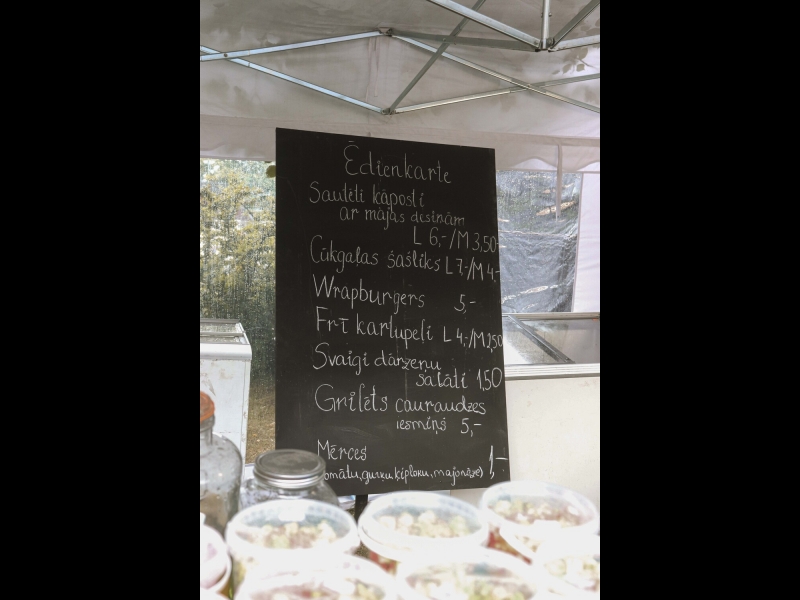 Ēdienkarte
Sautēti kāposti
ar mājas desiņām
L 6,-/M 3,50
Cūkgaļas šašliks L 7,-/M 4,-
Wrapburgers 5,-
Frī kartupeļi L 4,-/M 2,50
Svaigi dārzeņu
salāti 1,50
Grilēts cauraudzes
iesmiņš 5,-
Mērces 1,-
(tomātu, gurķu, ķiploku, majonēze)